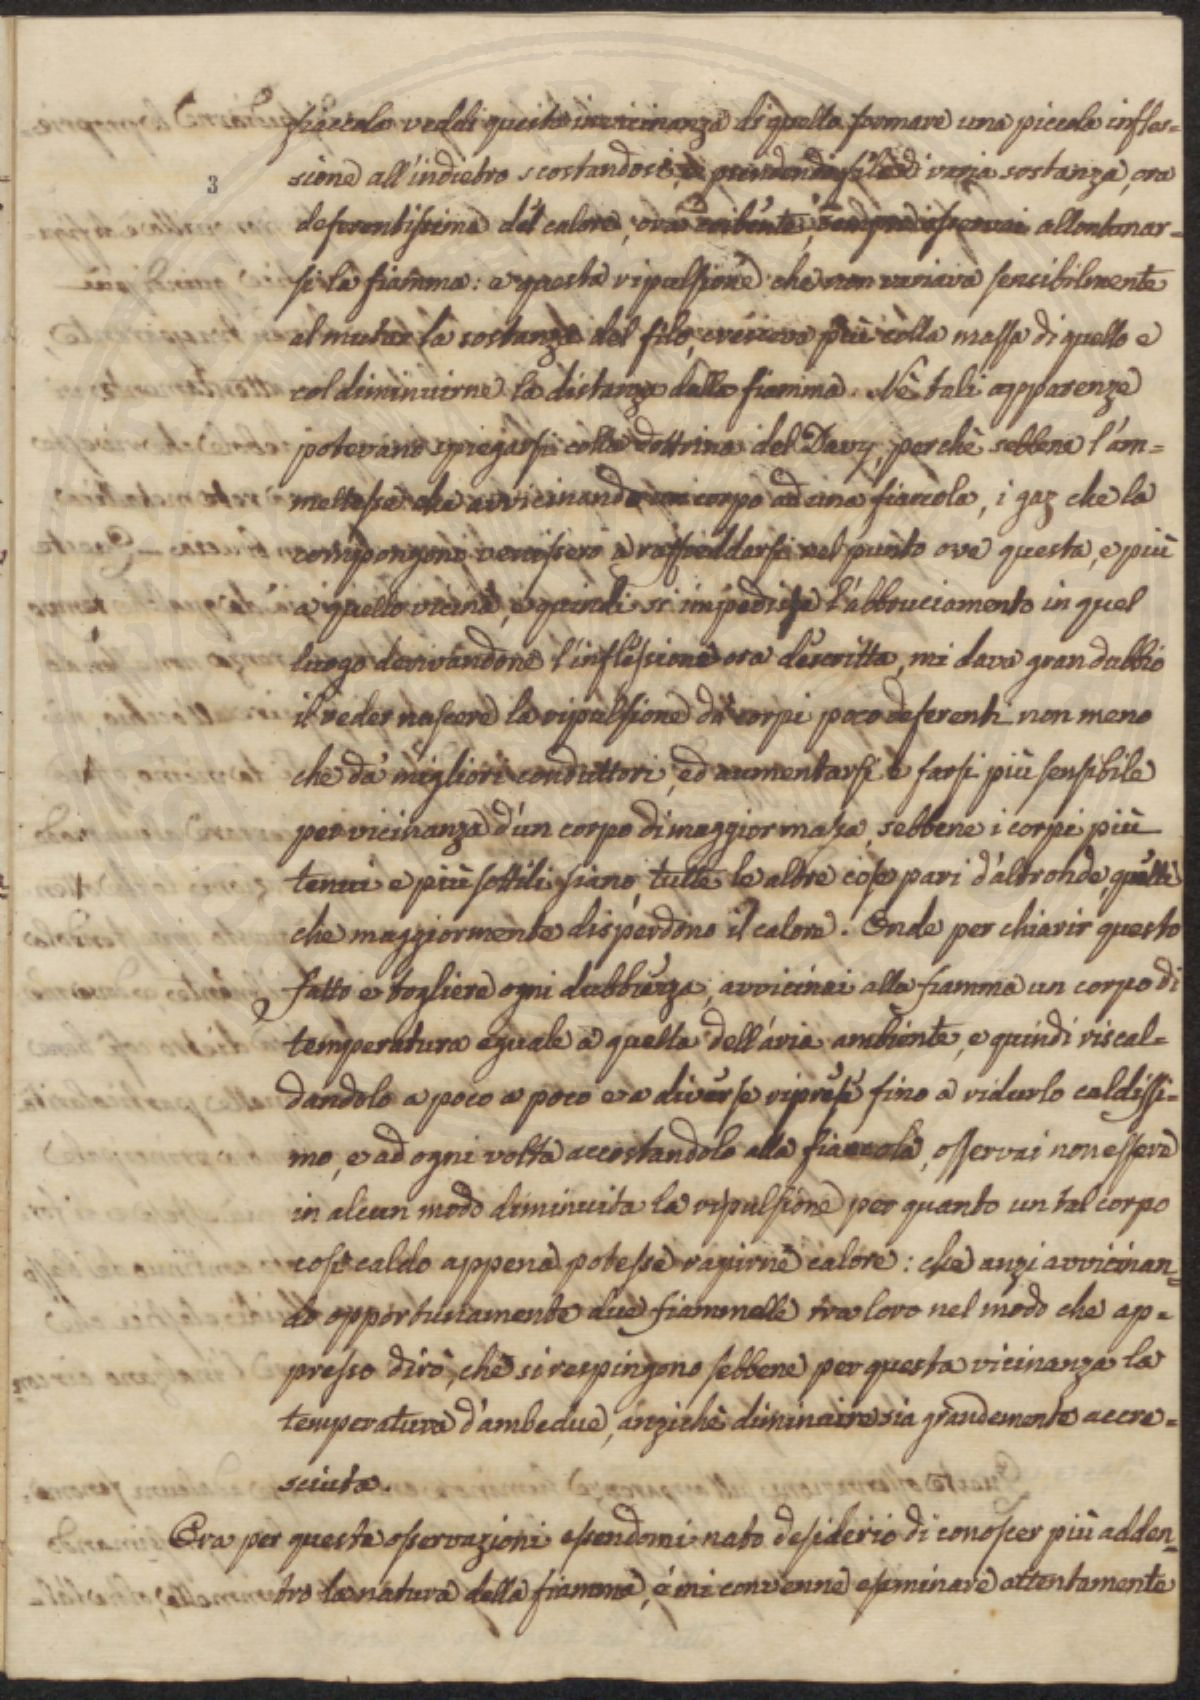 3
fiaccola veddi questa in vicinanza di quello formare una piccola infles=
sione all'indietro scostandosi, e prendendo fili di varia sostanza, ora
deferentissima del calore, ora coibente, sempre osservai allontanar=
si la fiamma: e questa ripulsione che non variava sensibilmente
al mutar la sostanza del filo, cresceva più colla massa di quello e
col diminuirne la distanza dalla fiamma. Nè tali apparenze
potevano spiegarsi colla dottrina del Davy, perchè sebbene l'am=
mettesse che avvicinando un corpo ad una fiaccola, i gaz che la
compongono venissero a raffreddarsi nel punto ove questa, e più
a quello vicina, e quindi si impedisse l'abbruciamento in quel
luogo derivandone l'inflessione ora descritta, mi dava gran dubbio
il veder nascere la ripulsione da corpi poco deferenti non meno
che da migliori conduttori, ed aumentarsi e farsi più sensibile
per vicinanza d'un corpo di maggior massa, sebbene i corpi più
tenui e più sottili siano, tutte le altre cose pari d'altronde, quelli
che maggiormente disperdono il calore. Onde per chiarir questo
fatto e togliere ogni dubbiezza, avvicinai alla fiamma un corpo di
temperatura eguale a quella dell'aria ambiente, e quindi riscal=
dandolo a poco a poco e a diverse riprese fino a ridurlo caldissi=
mo, e ad ogni volta accostandolo alla fiaccola, osservai non essere
in alcun modo diminuita la ripulsione per quanto un tal corpo
così caldo appena potesse rapirne calore: che anzi avvicinan=
do opportunamente due fiammelle tra loro nel modo che ap=
presso dirò, che si respingono sebbene per questa vicinanza la
temperatura d'ambedue, anzichè diminuire sia grandemente accre=
sciuta.
Ora per queste osservazioni essendomi nato desiderio di conoscer più adden=
tro la natura della fiamma, e' mi convenne esaminare attentamente